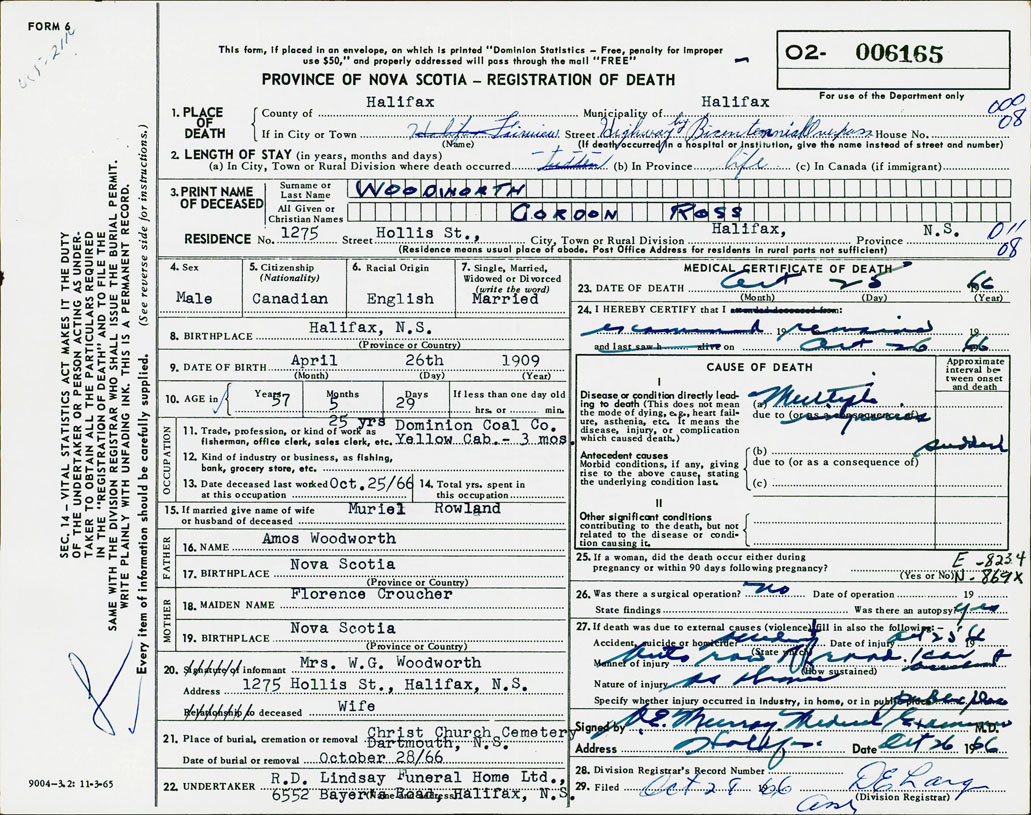 FORM 6
This form, if placed in an envelope, on which is printed "Dominion Statistics – Free, penalty for improper
use $50," and properly addressed will pass through the mail "FREE"
PROVINCE OF NOVA SCOTIA – REGISTRATION OF DEATH
O2- 006165
For use of the Department only
009
08
1. PLACE OF DEATH
County of Halifax Municipality of Halifax
If in City or Town Halifax Fairview Street Highway by Bicentennial Overpass House No.
(Name) (If death occurred in a hospital or institution, give the name instead of street and number)
2. LENGTH OF STAY (in years, months and days)
(a) In City, Town or Rural Division where death occurred sudden (b) In Province life (c) In Canada (if immigrant)
3. PRINT NAME OF DECEASED
Surname or Last Name WOODWORTH
All Given or Christian Names GORDON ROSS
RESIDENCE No. 1275 Street Hollis St., City, Town or Rural Division Halifax, Province N.S.
(Residence means usual place of abode. Post Office Address for residents in rural parts not sufficient)
011
08
4. Sex Male
5. Citizenship (Nationality) Canadian
6. Racial Origin English
7. Single, Married, Widowed or Divorced (write the word) Married
8. BIRTHPLACE Halifax, N.S.
(Province or Country)
9. DATE OF BIRTH April 26th 1909
(Month) (Day) (Year)
10. AGE in Years 57 Months 5 Days 29 If less than one day old hrs. or min.
OCCUPATION
25 yrs Dominion Coal Co.
11. Trade, profession or kind of work as
fisherman, office clerk, sales clerk, etc. Yellow Cab.- 3 mos.
12. Kind of industry or business, as fishing,
bank, grocery store, etc.
13. Date deceased last worked at this occupation Oct.25/66
14. Total yrs. spent in this occupation
15. If married give name of wife or husband of deceased Muriel Rowland
FATHER
16. NAME Amos Woodworth
17. BIRTHPLACE Nova Scotia
(Province or Country)
MOTHER
18. MAIDEN NAME Florence Croucher
19. BIRTHPLACE Nova Scotia
(Province or Country)
20. Signature of informant Mrs. W.G. Woodworth
Address 1275 Hollis St., Halifax, N.S.
Relationship to deceased Wife
21. Place of burial, cremation or removal Christ Church Cemetery
Dartmouth, N.S.
Date of burial or removal October 28/66
22. UNDERTAKER R.D. Lindsay Funeral Home Ltd.,
6552 Bayer's Road, Halifax, N.S.
MEDICAL CERTIFICATE OF DEATH
23. DATE OF DEATH Oct 25 66
(Month) (Day) (Year)
24. I HEREBY CERTIFY that I attended deceased from:
examined 19 remains 19
and last saw h alive on Oct 26 66
CAUSE OF DEATH
Approximate interval between onset and death
I
Disease or condition directly leading to death (This does not mean the mode of dying, e.g., heart failure, asthenia, etc. It means the disease, injury, or complication which caused death.)
(a) Multiple
due to (or as a consequence of) injuries
sudden
Antecedent causes
Morbid conditions, if any, giving rise to the above cause, stating the underlying condition last.
(b)
due to (or as a consequence of)
(c)
II
Other significant conditions
contributing to the death, but not related to the disease or condition causing it.
25. If a woman, did the death occur either during
pregnancy or within 90 days following pregnancy?
(Yes or No)
E-8234
N-869X
26. Was there a surgical operation? No Date of operation 19
State findings Was there an autopsy? yes
27. If death was due to external causes (violence) fill in also the following:–
Accident, suicide or homicide? Date of injury Oct 25 19
(State which)
Manner of injury Auto ran off road
(How sustained)
Nature of injury as above
Specify whether injury occurred in industry, in home, or in public place public place
Signed by Murray Medical Examiner M.D.
Address Halifax Date Oct 26 1966
28. Division Registrar's Record Number
29. Filed Oct 28 1966
(Division Registrar)
SEC. 14 – VITAL STATISTICS ACT MAKES IT THE DUTY
OF THE UNDERTAKER OR PERSON ACTING AS UNDER-
TAKER TO OBTAIN ALL THE PARTICULARS REQUIRED
IN THE "REGISTRATION OF DEATH" AND TO FILE THE
SAME WITH THE DIVISION REGISTRAR WHO SHALL ISSUE THE BURIAL PERMIT.
WRITE PLAINLY WITH UNFADING INK. THIS IS A PERMANENT RECORD.
Every item of information should be carefully supplied. (See reverse side for instructions.)
9004-3.2: 11-3-65